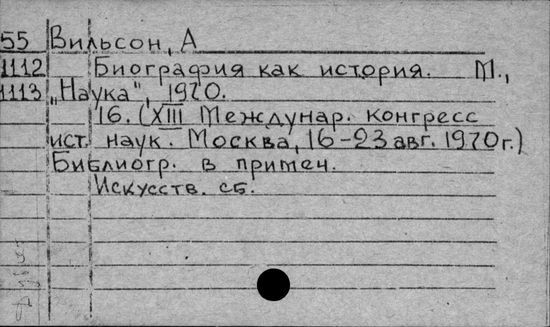 55 Вильсон, А
1112 Биография как история. М.,
1113 „Наука", 1970.
16. (XIII Междунар. конгресс
ист. наук. Москва, 16-23 авг. 1970г.)
Библиогр. в примеч.
Искусств. сб.